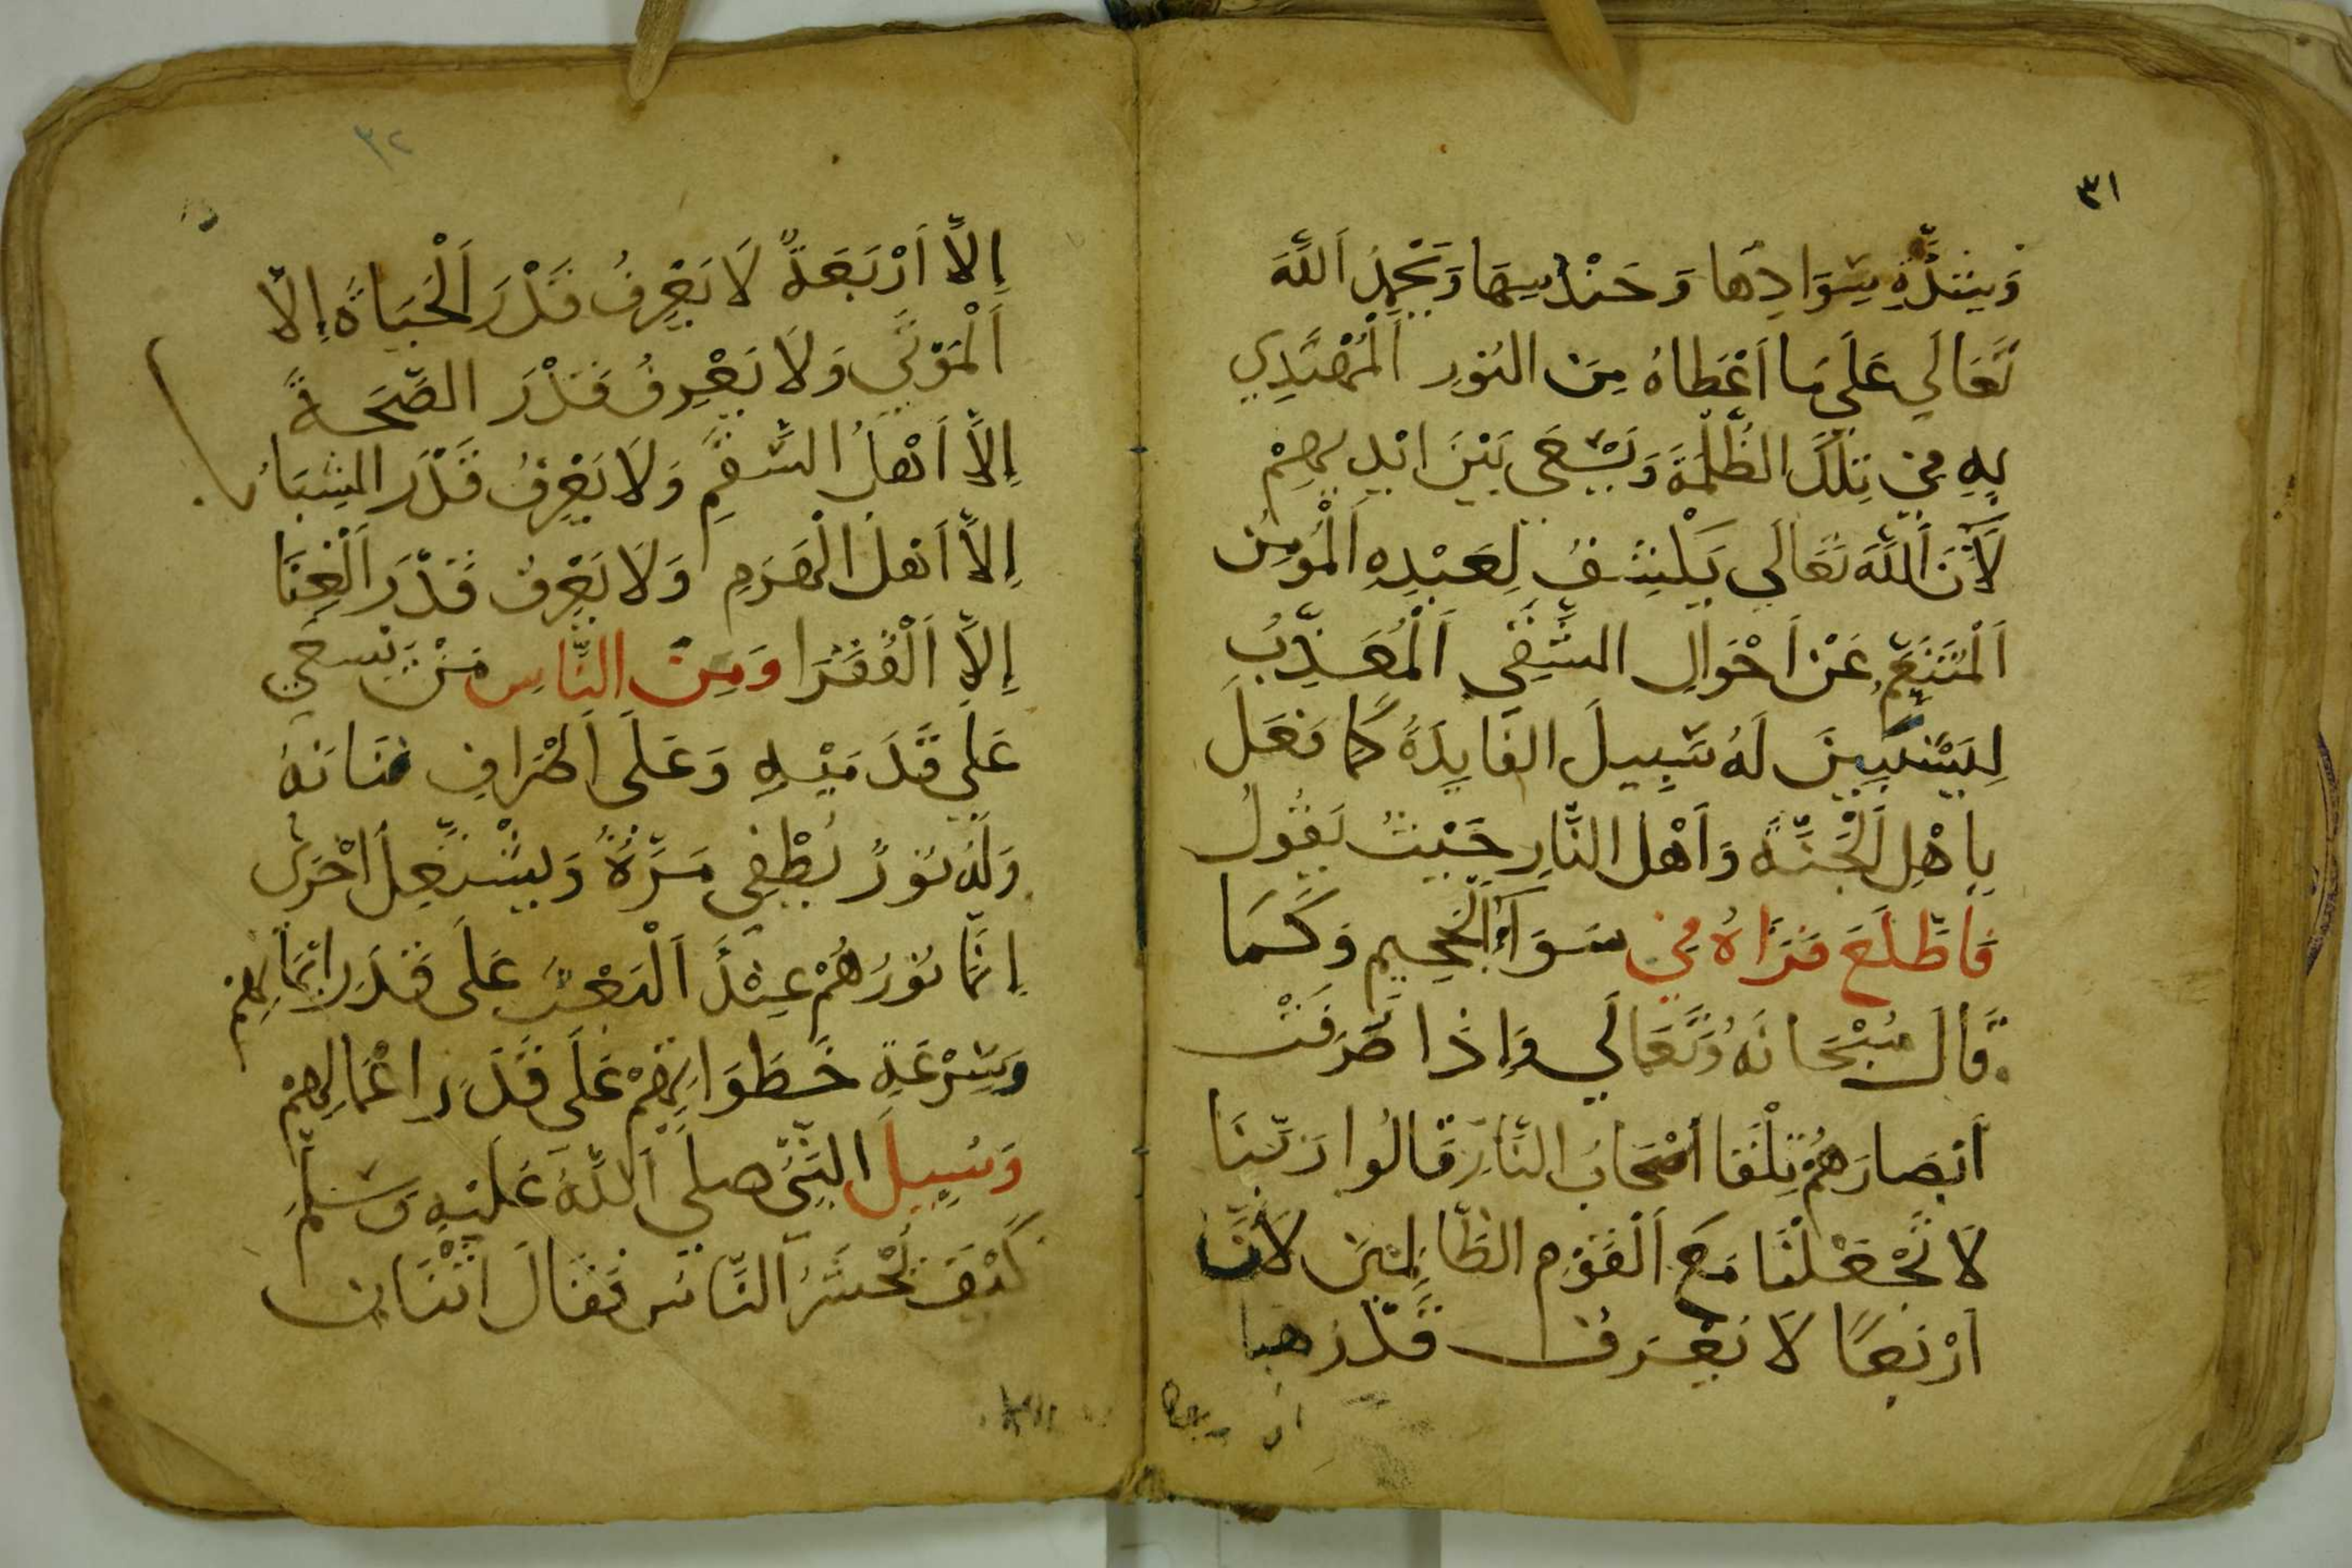 ٣١
وَيشدَّةِ سَوَادِهَا وَحَنْدسِهَا وَيَحْمِدُ اَللَّهَ
تَعَالَي عَلَي مَا اَعْطَاهُ مِنَ النُورِ اَلْمُهْتَدِي
بِهِ فِي تِلْكَ الظُّلْمَةِ وَيَسْعَي بَيْنَ ايْدِيهِمْ
لَأَنَ اَللَّهَ تَعَالَي يَكْشِفُ لِعَبْدِهِ اَلْمُؤمِن
اَلْمُتَنَعِّمِ عَنْ اَحْوَالِ الشَّقِي اَلْمُعَذَّبِ
لِيَسْتَبِينَ لَهُ سَبِيلَ الفَايِدَهُ كَمَا فَعَلَ
بِاَهْلِ اَلْجَنَّةِ وَاَهْل النَّارِ حَيْثُ يَقُولُ
فَاطَّلَعَ فَرَاهُ فِي سَوَآءِ اَلْجَحِيمِ وَكَمَا
قَالَ سُبْحَانَهُ وَتَعَالَي وَإِذَا صُرِفَتْ
اَبْصَارَهُمْ تِلْقَا اَصْحَابُ النَّارِ قَالُوا رَبَّنَا
لَا تَجْعَلْنَا مَعَ اَلْقَوْمِ الظَّالِمِينَ لَأَنَّ
اَرْبَعًا لَا يَعْرَفُ قَدْرَهَا
٣٢
إِلاَّ اَرْبَعَةٌ لَا يَعْرِفُ قَدْرَ اَلْحَيَاةِ إِلاَّ
اَلْمَوْتَي وَلَا يَعْرِفُ قَدْرَ الصِّحَةَ
إِلاَّ اَهْلُ السَّقَمِ وَلَا يَعْرِفُ قَدْرَ الشَبَابُ
إِلاَّ اَهْلَ الْهَرَمِ وَلَا يَعْرِفُ قَدْرَ اَلْغِنَا
إِلاَّ اَلْفُقَرَا وَمِنَ النَّاسِ مَنْ يَسعَي
عَلَي قَدَمَيْهِ وَعَلَى اَطْرَافِ بَنَانَهُ
وَلَهُ نُورً يُطْفِي مَرَّةً وَيَشْتَعِلُ اُخْرَى
اِنَّمَا نُورُهُمْ عِنْدَ اَلْبَعْثِ عَلَى قَدَرِ اِيْمَانِهِمْ
وَسَرْعَةِ خَطَوَاتِهِمْ عَلَى قَدَرِ اَعْمَالِهِمْ
وَسُيِلَ النَّبِيُّ صلي اَللَّهُ عَلَيْهِ وَسَلَّمَ
كَيْفَ تُحْشَرُ اَلنَّاسُ فَقَالَ اثْنَانِ